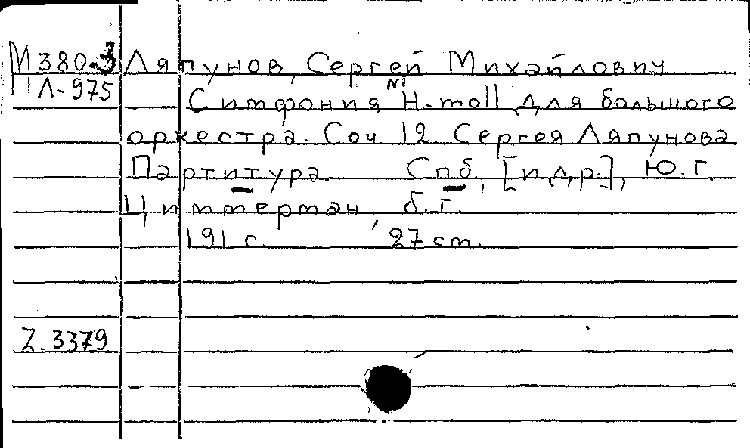 М380-3 Ляпунов, Сергей Михайлович
Л-975 Симфония №1 H-moll для большого
оркестра. Соч 12 Сергея Ляпунова
Партитура. Спб, [и др.], Ю. Г.
Циммерман, б. г.
191 с. 27 cm.
Z. 3379